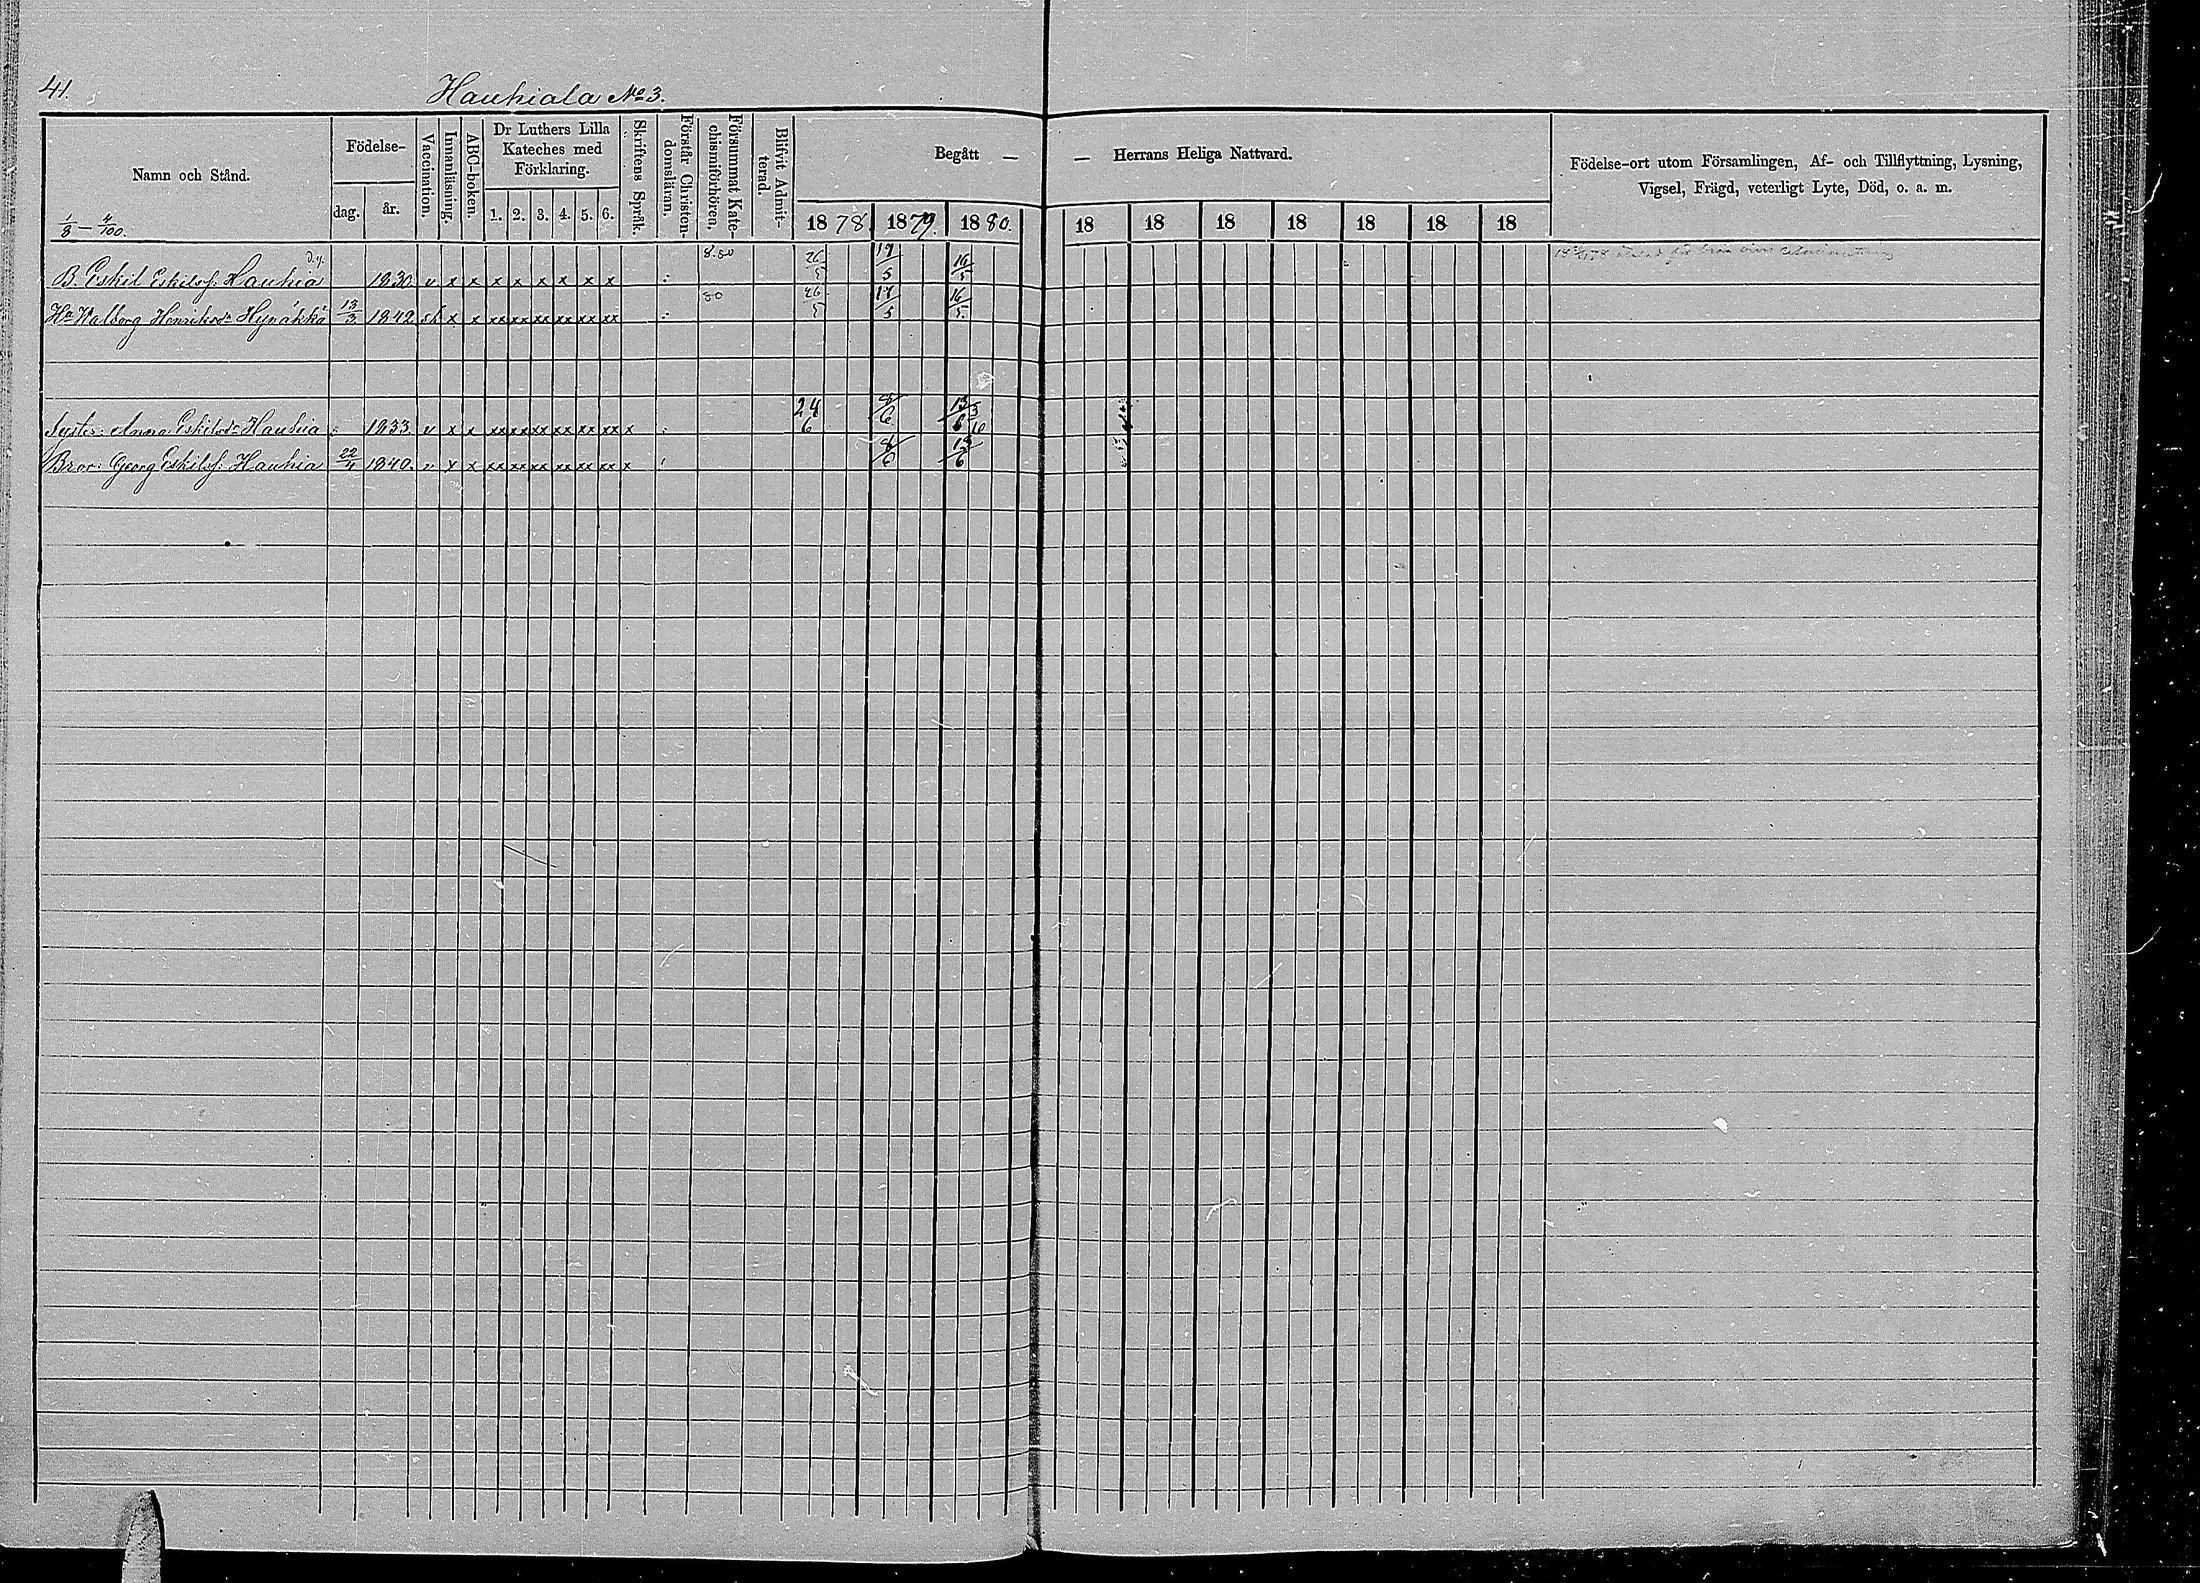 41.
Hauhiala No 3.
Namn och Stånd.
1/3 — 4/100.
Födelse-
dag.
år.
Vaccination.
Innanläsning.
ABC-boken.
Dr Luthers Lilla
Kateches med
Förklaring.
1. 2. 3. 4. 5. 6.
Skriftens Språk.
Förstår Christen-
domsläran.
Försummat Kate-
chismiförhören.
Blifvit Admit-
terad.
Begått —
— Herrans Heliga Nattvard.
1878. 1879. 1880. 18 18 18 18 18 18 18
Födelse-ort utom Församlingen, Af- och Tillflyttning, Lysning,
Vigsel, Frägd, veterligt Lyte, Död, o. a. m.
B. Eskil Eskilsf: Hauhia d.y. 1830 v x x x x x x x x 8.80 26/5 17/5 16/5
Hu Walborg Henriksdr Hynäkkä 13/3 1842 x x xx xx xx xx xx xx 80 26/5 17/5 16/5
Syster: Anna Eskilsdr Hauhia 1833 v x x xx xx xx xx xx xx x 24/6 8/6 13/6 3/10
Bror: Georg Eskilsf: Hauhia 22/4 1840. v x x xx xx xx xx xx xx x 8/6 13/6